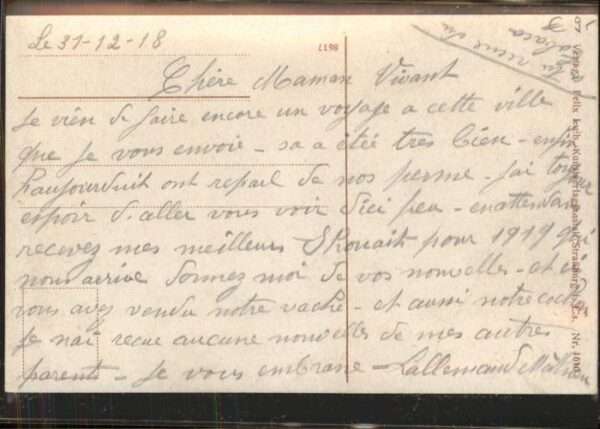 Le 31-12-18
Chère Maman Vivant
Je vien de faire encore un voyage a cette ville
que je vous envoie - sa a étéé tres bien - enfin
haujourduit ont reparl de nos perme - jai toujour
espoir d aller vous voir dici peu - enattendant
recevez mes meilleurs Shouait pour 1919 qui
nous arrive donnez moi de vos nouvelles - et si
vous avez vendu notre vache - et aussi notre
Je nai recue aucune nouvelles de mes autres
parents - Je vous embrasse - Lallemand
1198
Verlag Felix Luib, Strassburg i. Els. Nr.